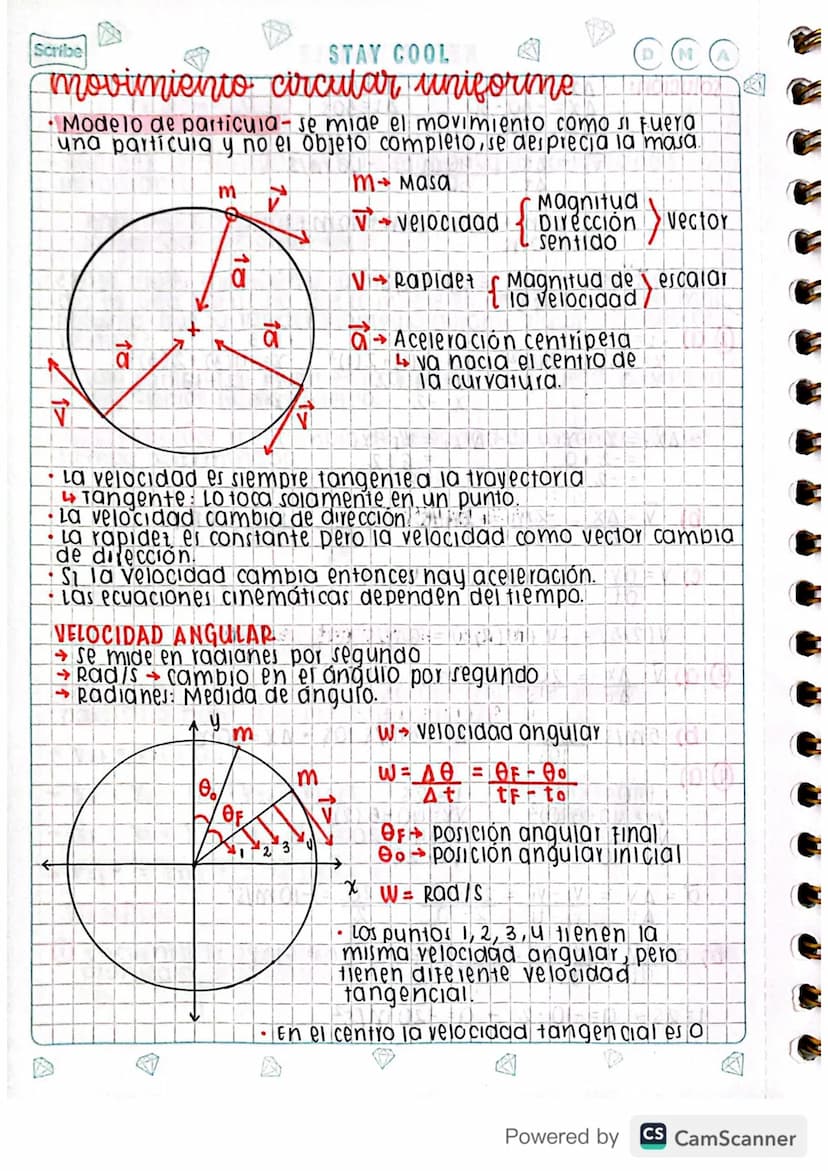 Scribe
STAY COOL
D M A
movimiento circular uniforme
• Modelo de partícula - se mide el movimiento como si fuera
una partícula y no el objeto completo, se desprecia la masa.
m → Masa
v → velocidad { Magnitud Dirección sentido } vector
V → Rapidez { Magnitud de la velocidad } escalar
a → Aceleración centrípeta
↳ va hacia el centro de
la curvatura.
m
v
a
a
a
v
v
• La velocidad es siempre tangente a la trayectoria
↳ Tangente: Lo toca solamente en un punto.
• La velocidad cambia de dirección.
• La rapidez es constante pero la velocidad como vector cambia
de dirección.
• Si la velocidad cambia entonces hay aceleración.
• Las ecuaciones cinemáticas dependen del tiempo.
VELOCIDAD ANGULAR
→ se mide en radianes por segundo
→ Rad/s → cambio en el ángulo por segundo
→ Radianes: Medida de ángulo.
y
m
m
θo
θF
v
1 2 3 4
x
W → velocidad angular
W = Δθ/Δt = θF - θo / tF - to
θF → posición angular final
θo → posición angular inicial
W = Rad/s
• Los puntos 1, 2, 3, 4 tienen la
misma velocidad angular, pero
tienen diferente velocidad
tangencial.
• En el centro la velocidad tangencial es 0
Powered by CS CamScanner